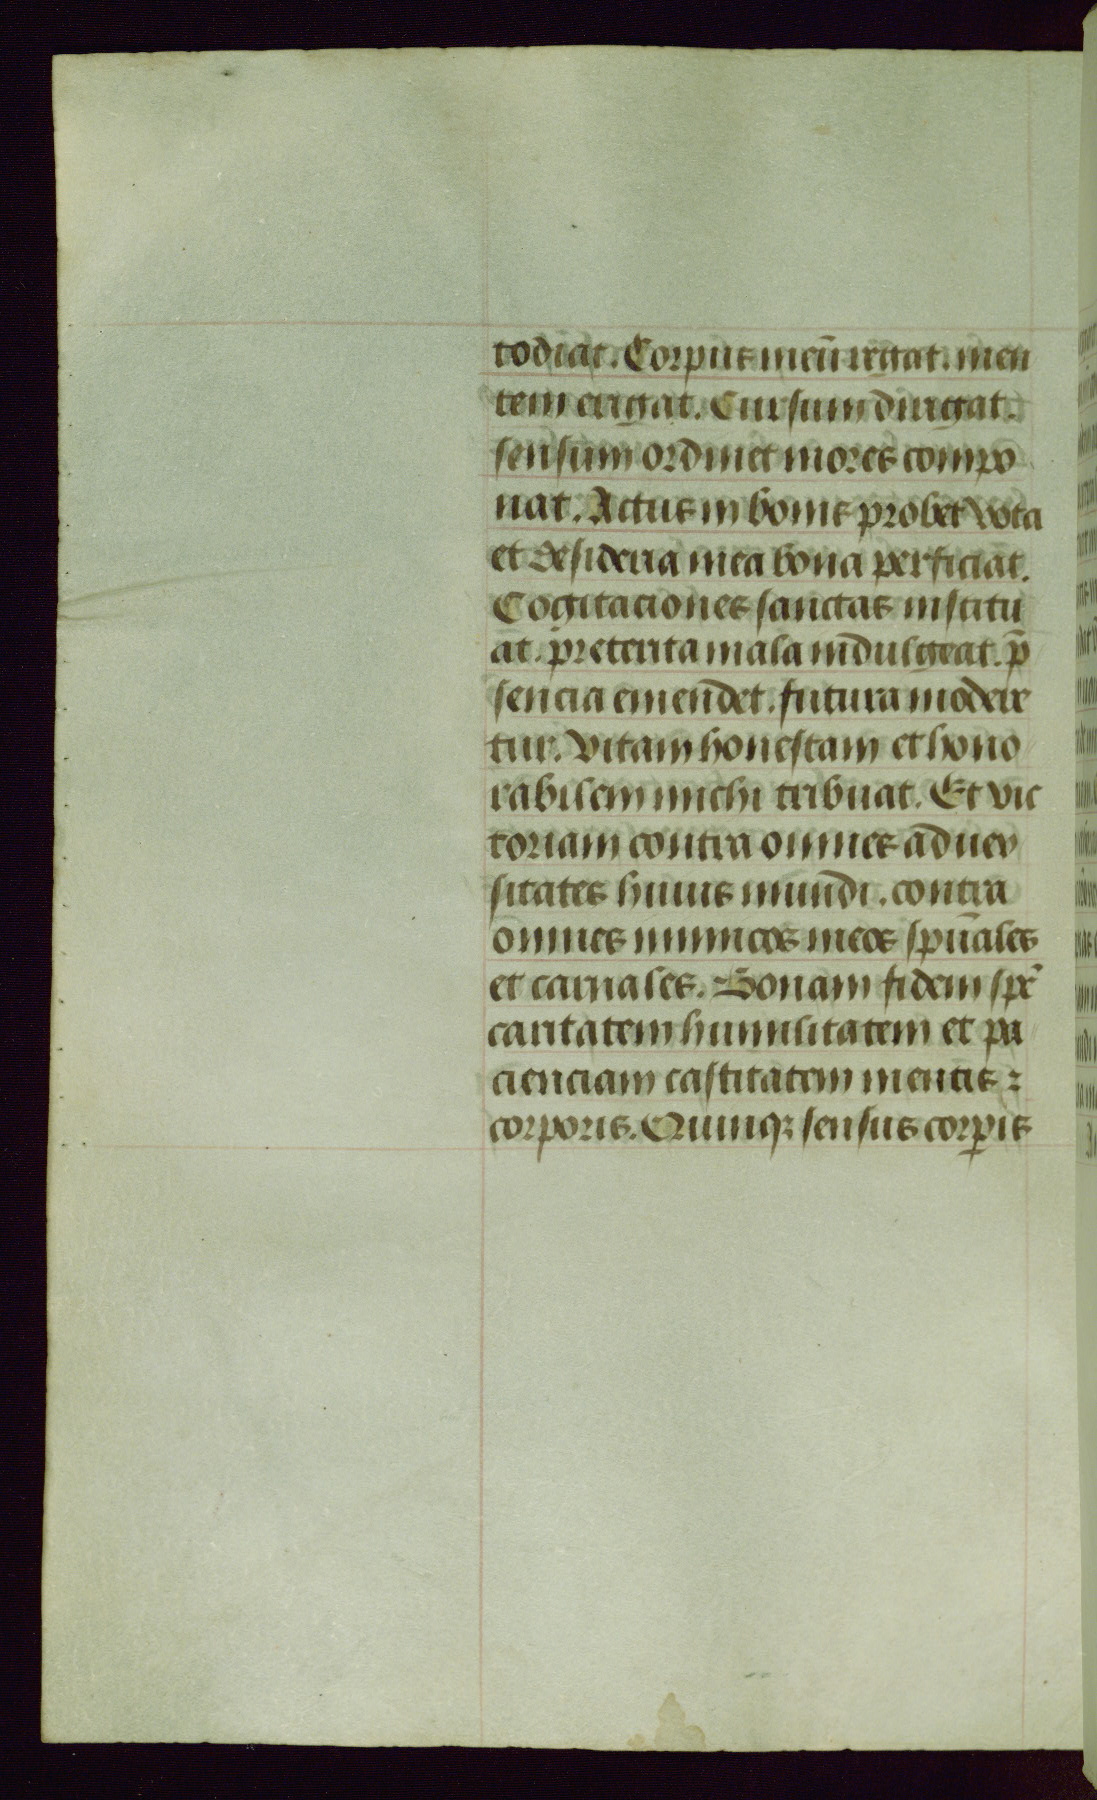 todiat. Corpus meū regat. men
tem erigat. Cursum dirigat.
sensum ordinet mores compo
nat. Actus in bonis probet vota
et desideria mea bona perficiat.
Cogitaciones sanctas institu
at. preterita mala indulgeat. p̄
sencia emendet. futura modere
tur. Vitam honestam et hono
rabilem michi tribuat. Et vic
toriam contra omnes aduer
sitates huius mundi. contra
omnes inimicos meos spūales
et carnales. Bonam fidem spē
caritatem humilitatem et pa
cienciam castitatem mentis :
corporis. Quinqꝫ sensus corꝑis